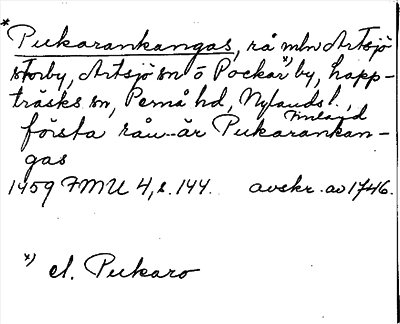 * Pukarankangas, rå mln Artsjö
storby, Artsjö sn o Pockar *) by, Lapp-
träsks sn, Pernå hd, Nylands l.,
Finland
första rån är Pukarankan-
gas
1459 FMU 4, s. 144. avskr. av 1746.
*) el. Pukaro